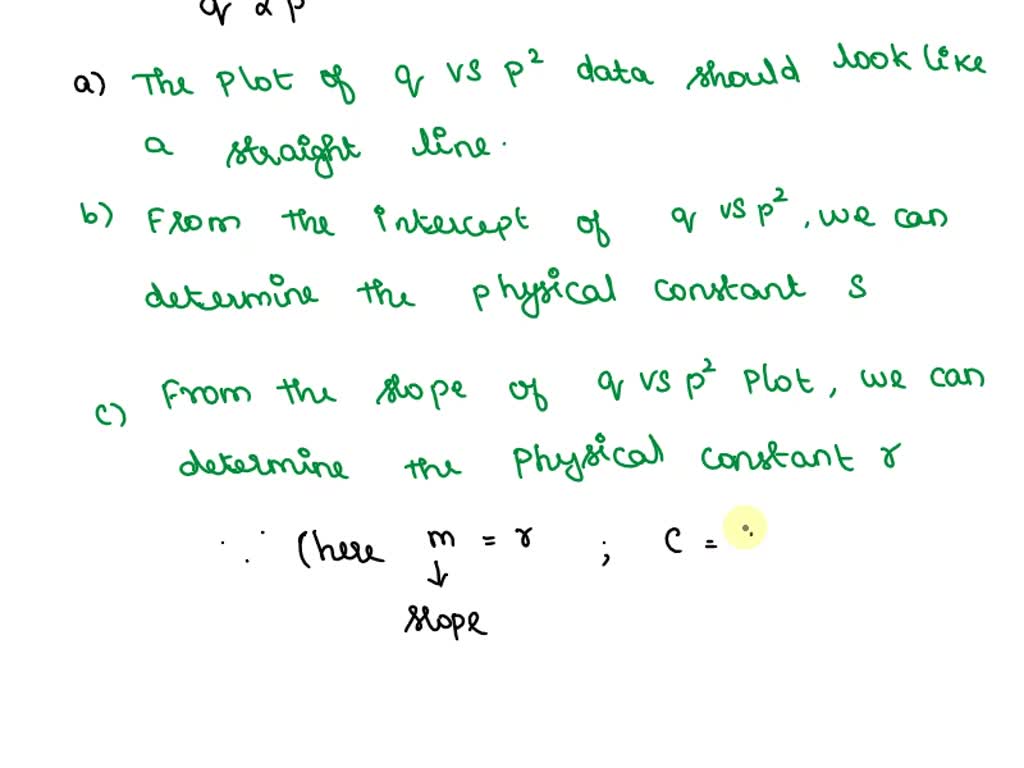 q α p
a) The plot of q vs p² data should look like
a straight line.
b) From the intercept of q vs p², we can
determine the physical constant s
c) From the slope of q vs p² plot, we can
determine the physical constant r
∵ (here m = r ; c =
↓
slope